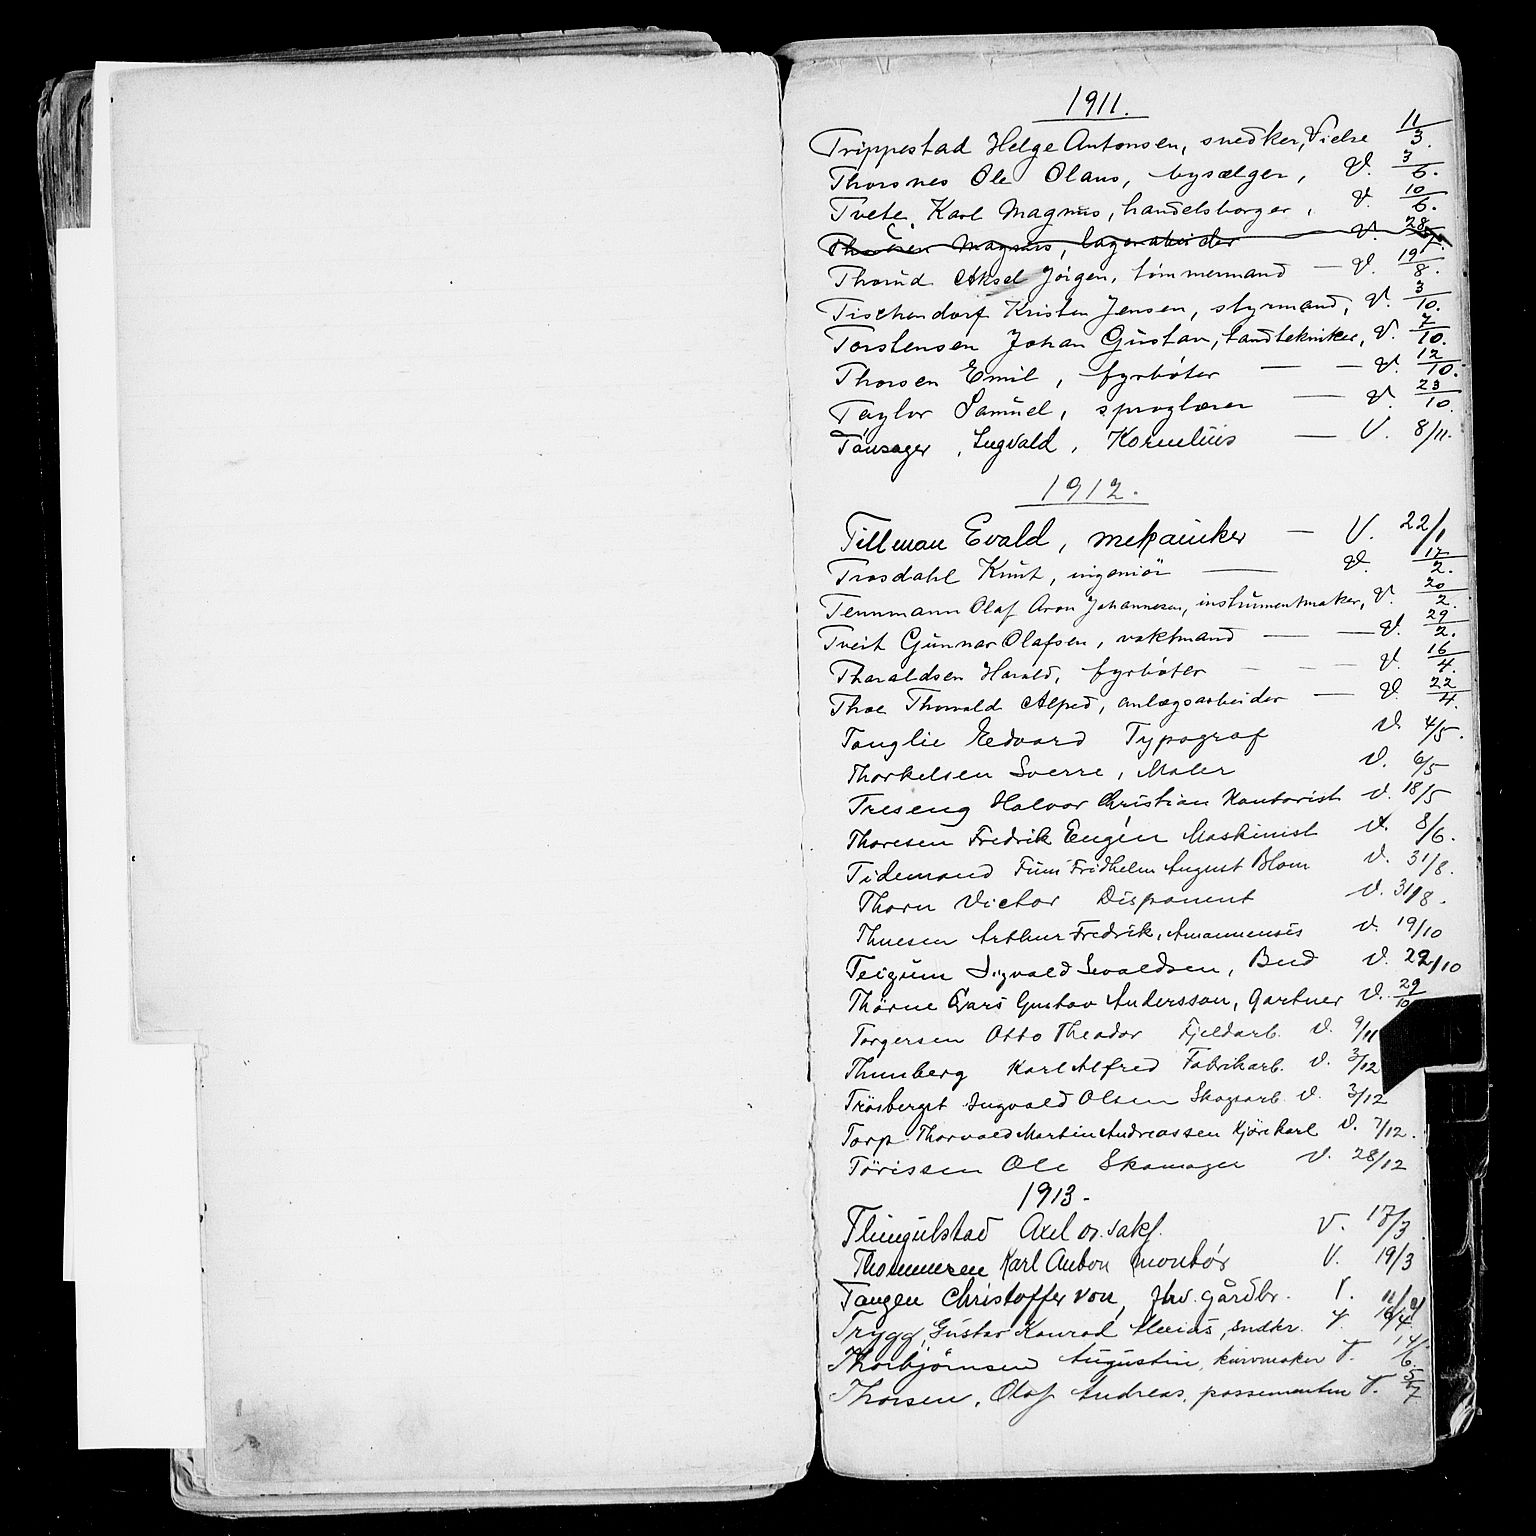 1911.
Trippestad Helge Antonsen, snedker, Vielse 11/3.
Thorsnes Ole Olaus, bysælger, V. 3/6.
Tvete, Karl Magnus, handelsborger, V. 10/6.
Magnus, lagerarbeider V. 28
Thorud Aksel Jörgen, tømmermand — V. 19/8.
Tischendorf Kristen Jensen, styrmand, V. 3/10.
Torstensen Johan Gustav, tandtekniker, V. 7/10.
Thorsen Emil, fyrbøter — — V. 12/10.
Taylor Samuel, sproglærer — V. 23/10.
Tønsager, Ingvald, Kornelius — V. 8/11.
1912.
Tillman Evald, mekaniker — V. 22/1
Trosdahl Knut, ingeniør — V. 17/2.
Tennmann Olaf Aron Johannesen, instrumentmaker, V. 20/2.
Tveit Gunnar Olafsen, vaktmand — — V. 29/2.
Tharaldsen Harald, fyrbøter — — — V. 16/4.
Thoe Thorvald Alfred, anlægsarbeider — V. 22/4.
Tanglie Edvard Typograf V. 4/5.
Thorkelsen Sverre, Maler V. 6/5
Treseng Halvor Christian Kontorist V. 18/5
Thoresen Fredrik Eugén Maskinist V. 8/6.
Tidemand Fridhelm August Blom V. 31/8.
Thorn Victor Disponent V. 31/8.
Thuesen Arthur Fredrik, Amanuensis V. 19/10
Teigum Sigvald Sevaldsen, Bud V. 22/10
Thörne Lars Gustav Andersson, Gartner V. 29/10
Torgersen Otto Theodor Fjeldarb. V. 9/11
Thunberg Karl Alfred Fabrikarb. V. 3/12
Trösberget Ingvald Olsen Skogsarb. V. 3/12
Torp Thorvald Martin Andreassen Kjörekarl V. 7/12.
Törissen Ole Skomager V. 28/12
1913.
Axel or. sakf. V. 17/3
Thommesen Karl Anton montör V. 19/3
Tangen Christoffer von, fhv. gårdbr. V.
Trygg, Gustav Konrad snedkr. V.
Thorbjörnsen Augustin, kurvmaker V. 14/6.
Thorsen, Olaf Andreas, V. 5/7